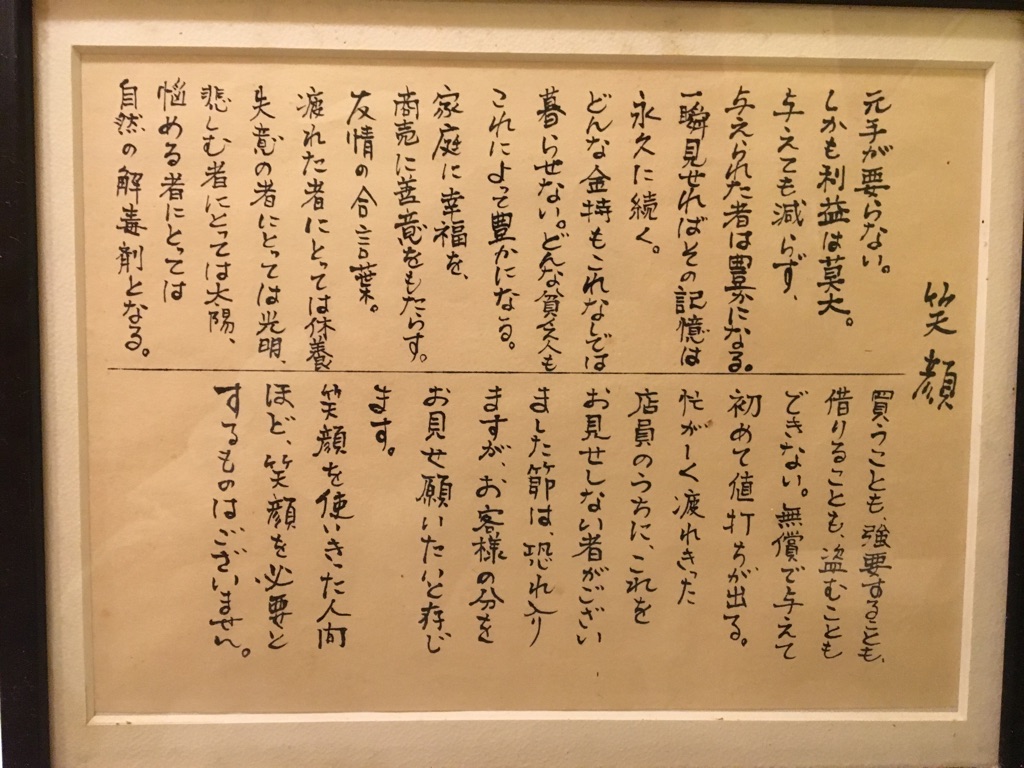 笑顔
元手が要らない。
しかも利益は莫大。
与えても減らず、
与えられた者は豊かになる。
一瞬見せればその記憶は
永久に続く。
どんな金持もこれなしでは
暮らせない。どんな貧乏人も
これによって豊かになる。
家庭に幸福を、
商売に善意をもたらす。
友情の合言葉。
疲れた者にとっては休養
失意の者にとっては光明、
悲しむ者にとっては太陽、
悩める者にとっては
自然の解毒剤となる。
買うことも、強要することも、
借りることも、盗むことも
できない。無償で与えて
初めて値打ちが出る。
忙がしく疲れきった
店員のうちに、これを
お見せしない者がござい
ました節は、恐れ入り
ますが、お客様の分を
お見せ願いたいと存じ
ます。
笑顔を使いきった人間
ほど、笑顔を必要と
するものはございません。